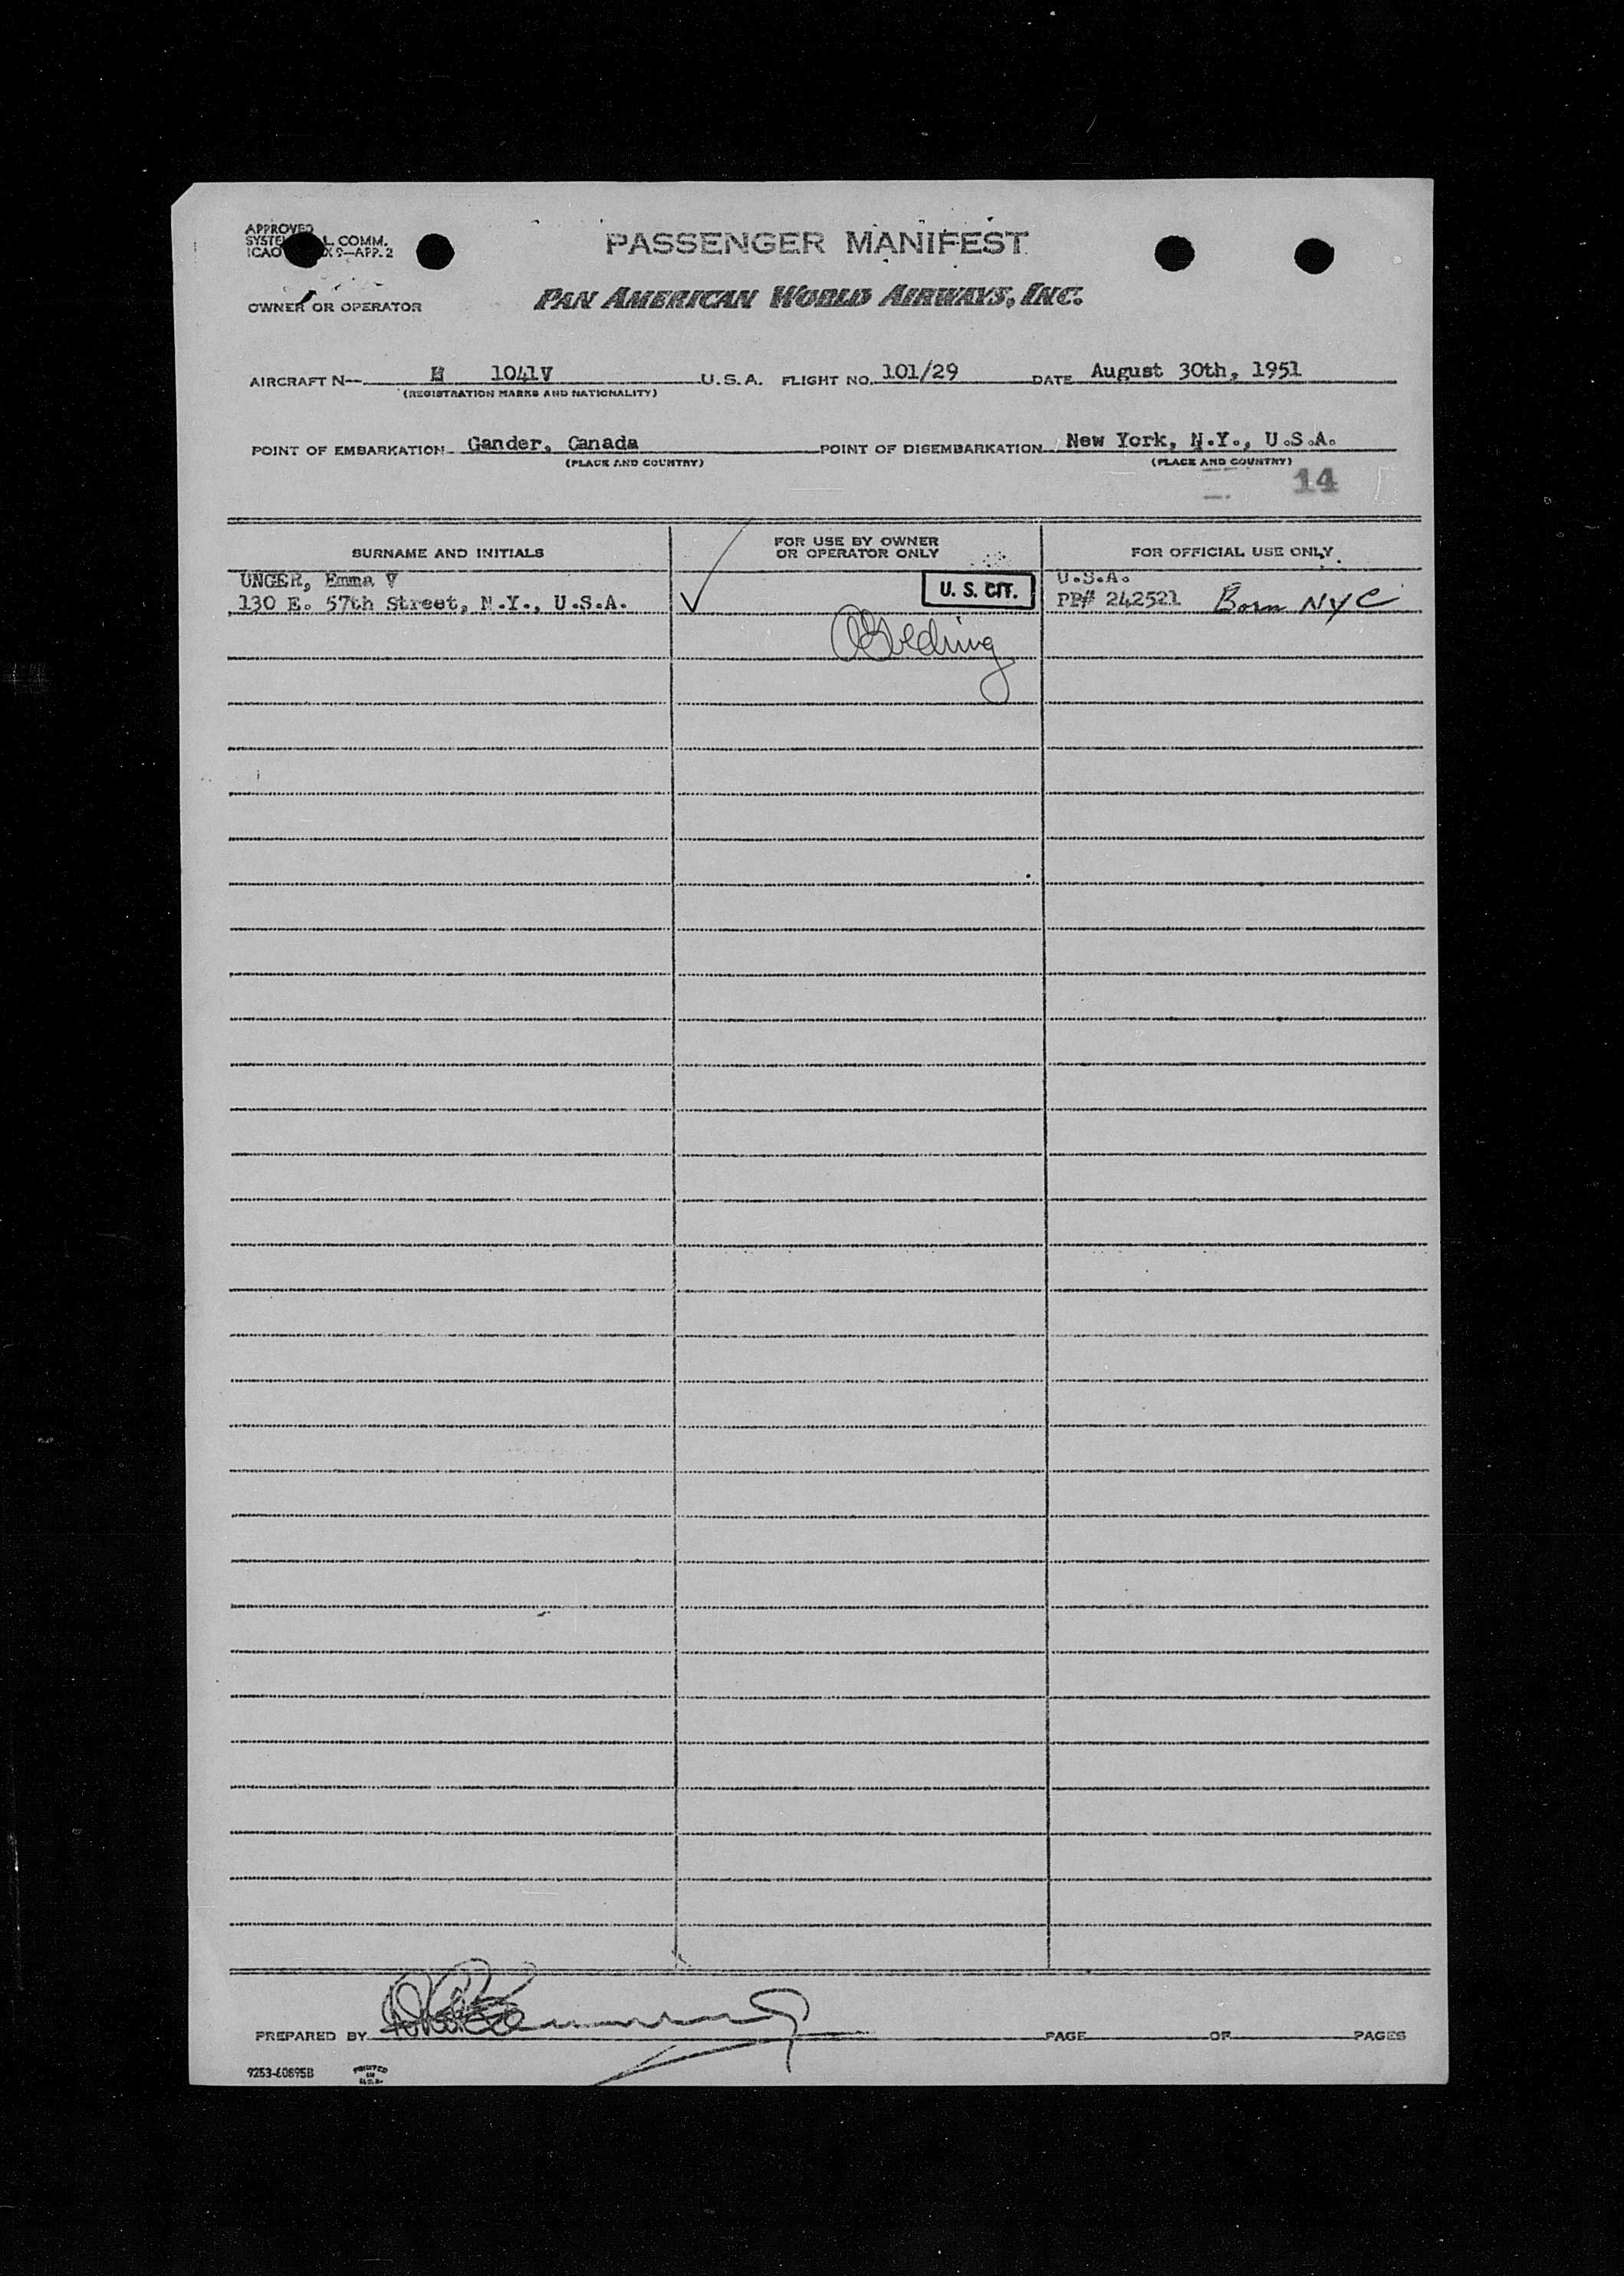 APPROVED
SYSTE L. COMM.
ICAO X 9—APP. 2
PASSENGER MANIFEST
OWNER OR OPERATOR PAN AMERICAN WORLD AIRWAYS, INC.
AIRCRAFT N— 1041V U.S.A. FLIGHT NO. 101/29 DATE August 30th, 1951
(REGISTRATION MARKS AND NATIONALITY)
POINT OF EMBARKATION Gander, Canada POINT OF DISEMBARKATION New York, N.Y., U.S.A.
(PLACE AND COUNTRY) (PLACE AND COUNTRY)
14
SURNAME AND INITIALS FOR USE BY OWNER OR OPERATOR ONLY FOR OFFICIAL USE ONLY
UNGER, Emma V U.S.A.
130 E. 57th Street, N.Y., U.S.A. U. S. CIT. PP# 242521 Born NYC
PREPARED BY PAGE OF PAGES
9253-60895B PRINTED IN U.S.A.